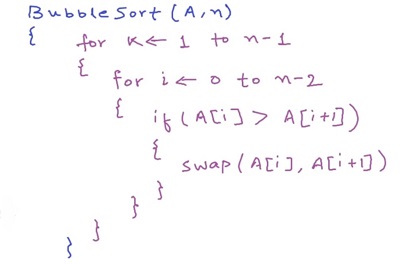 BubbleSort(A,n)
{
for k ← 1 to n-1
{
for i ← 0 to n-2
{
if(A[i] > A[i+1])
{
swap(A[i], A[i+1])
}
}
}
}